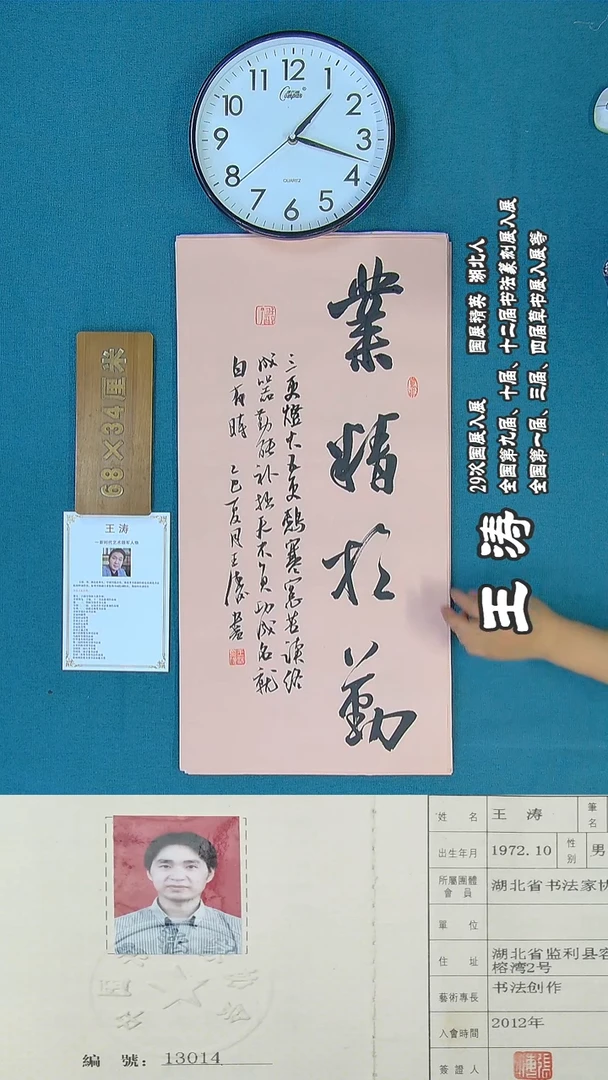 12
1
2
3
4
5
6
7
8
9
10
11
Compas
QUARTZ
68×34厘米
王涛
業精於勤
三更燈火五更鷄寒窗苦讀終
成器勤能補拙天不負功成名就
自有時 乙巳夏月王濤書
29次国展入展 国展精英 湖北人
全国第九届、十届、十二届书法篆刻展入展
全国第一届、三届、四届草书展入展等
王涛
編 號：13014
姓 名 王 涛 筆名
出生年月 1972.10 性別 男
所屬團體會員 湖北省书法家协
單 位
住 址 湖北省监利县容
榕湾2号
藝術專長 书法创作
入會時間 2012年
簽證人